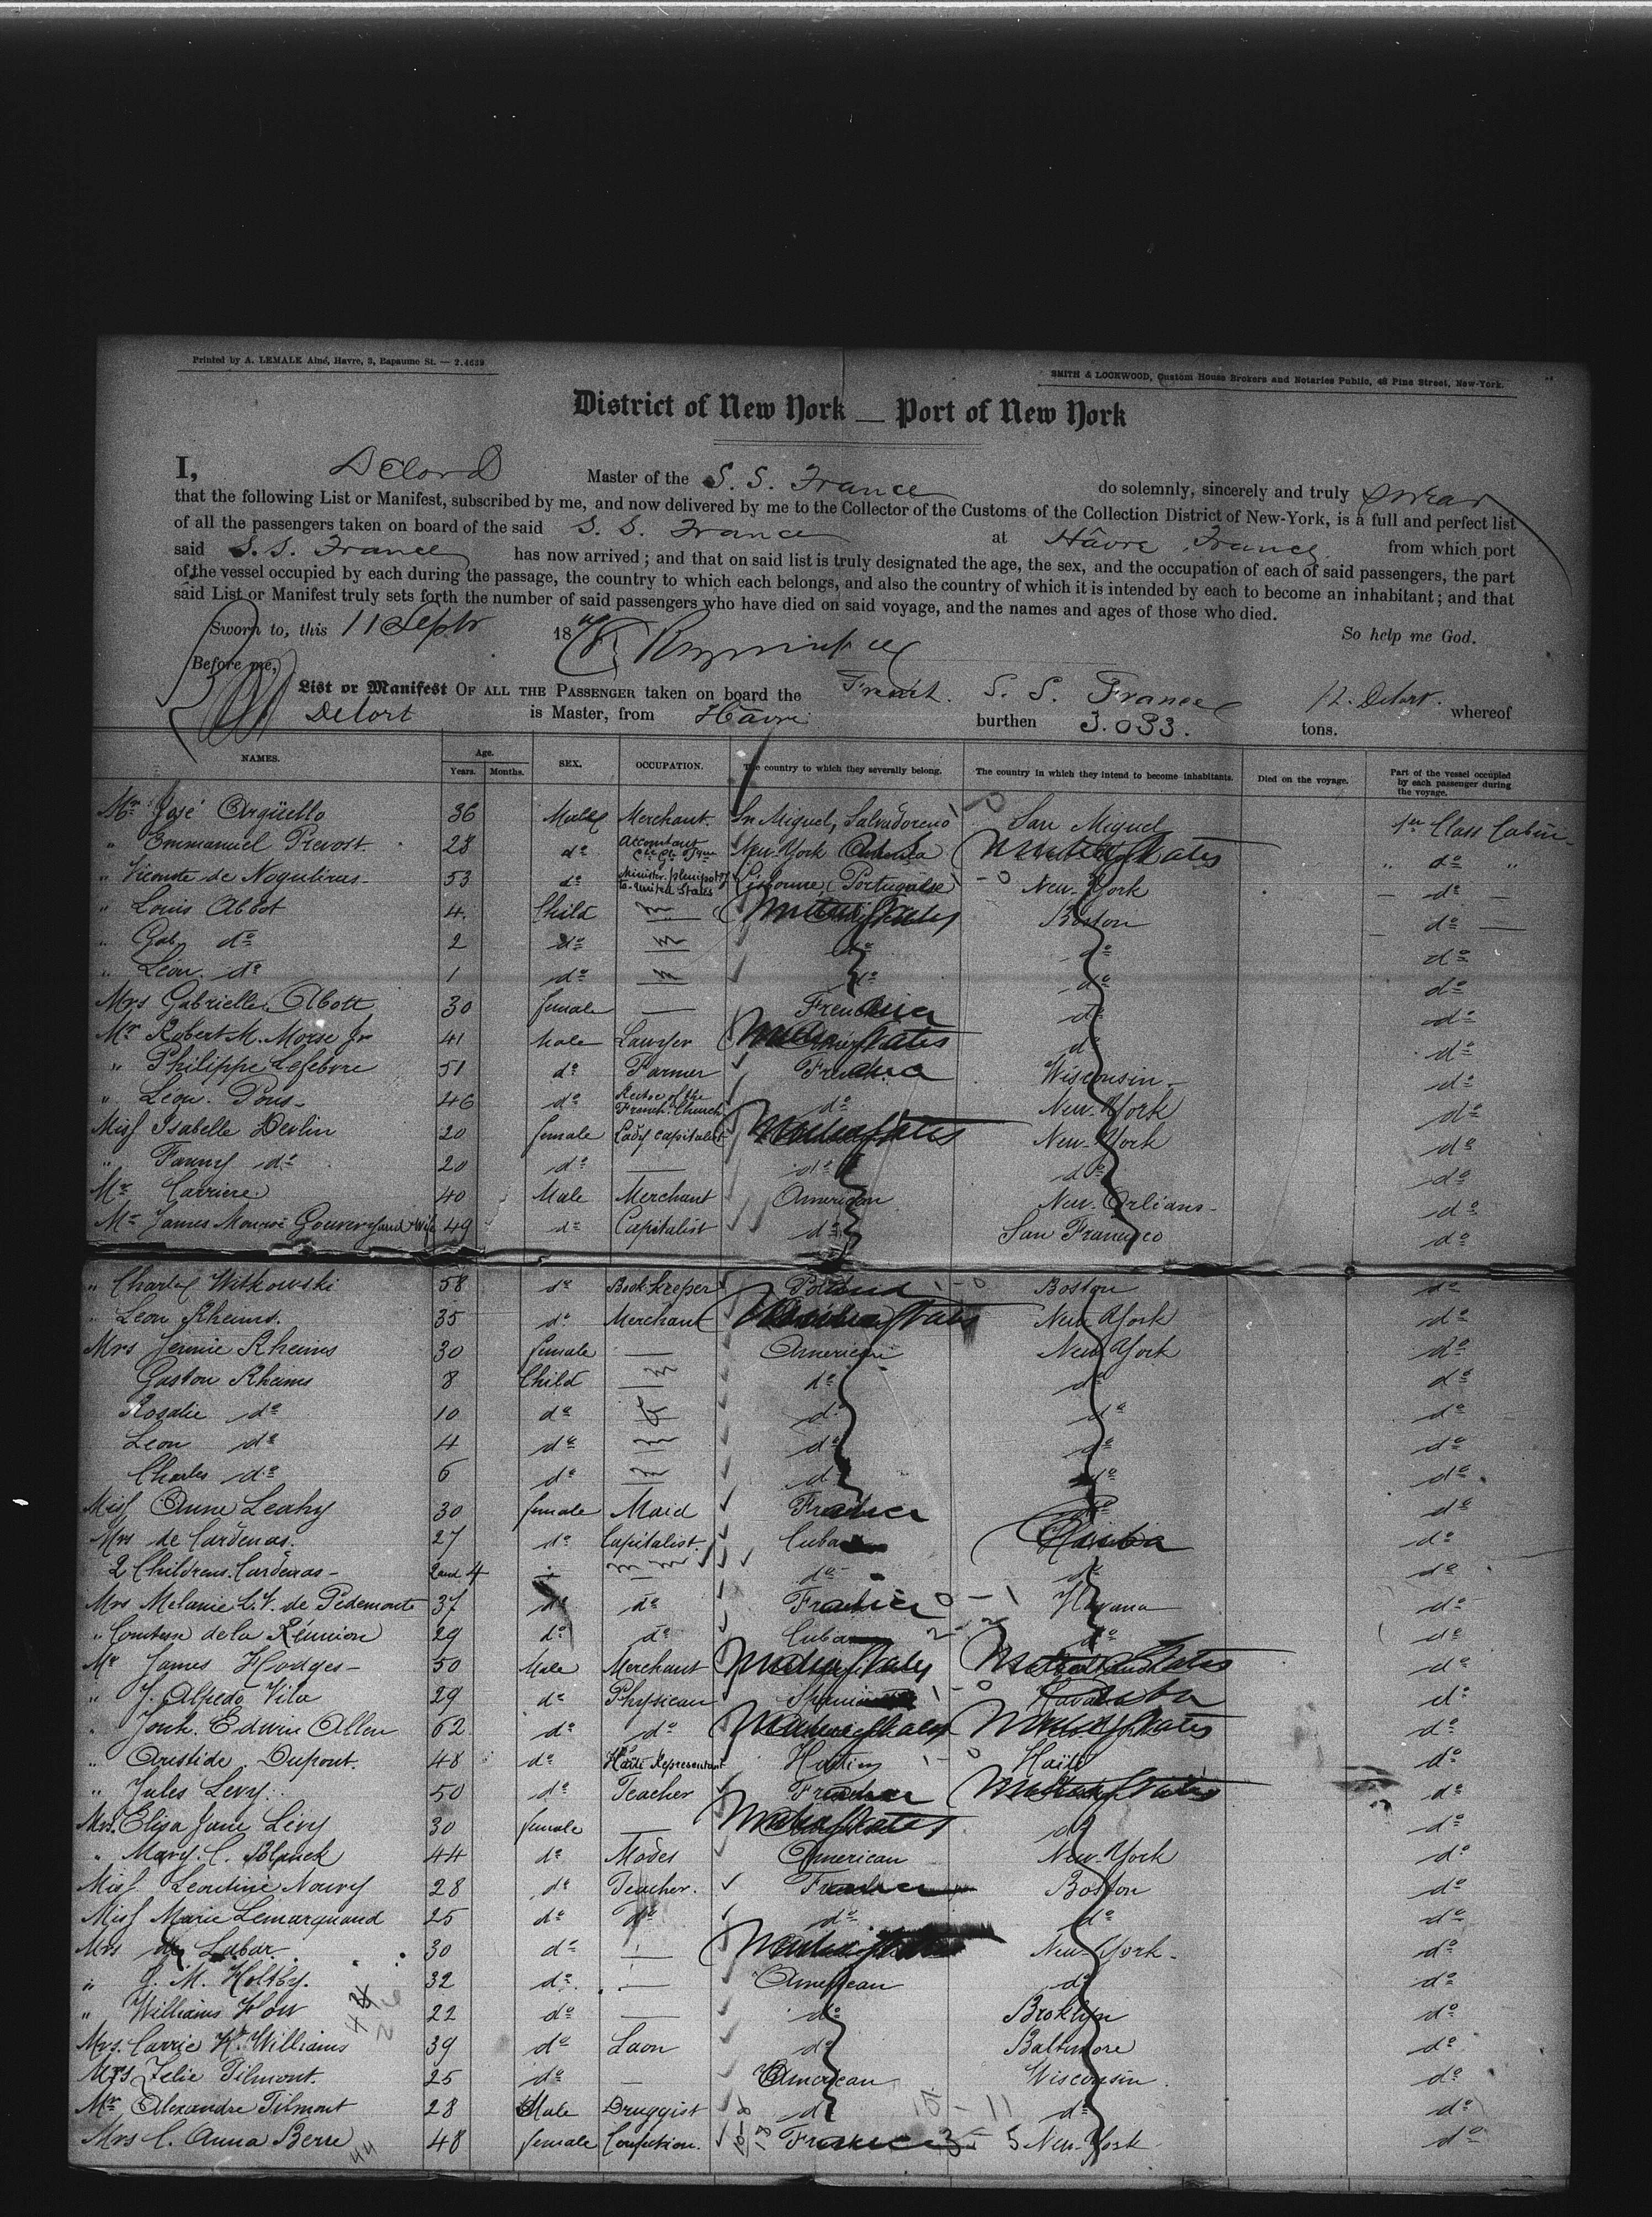 Printed by A. LEMALE Aîné, Havre, 3, Bapaume St. — 2.4639
SMITH & LOCKWOOD, Custom House Brokers and Notaries Public, 48 Pine Street, New-York.
District of New York — Port of New York
I, Delord Master of the S. S. France do solemnly, sincerely and truly swear
that the following List or Manifest, subscribed by me, and now delivered by me to the Collector of the Customs of the Collection District of New-York, is a full and perfect list
of all the passengers taken on board of the said S. S. France at Hâvre France from which port
said S. S. France has now arrived; and that on said list is truly designated the age, the sex, and the occupation of each of said passengers, the part
of the vessel occupied by each during the passage, the country to which each belongs, and also the country of which it is intended by each to become an inhabitant; and that
said List or Manifest truly sets forth the number of said passengers who have died on said voyage, and the names and ages of those who died.
Sworn to, this 11 Septr 18 So help me God.
Before me,
List or Manifest OF ALL THE PASSENGER taken on board the French S. S. France whereof
Delort is Master, from Havre burthen 3.033. tons.
NAMES. Age. Years. Months. SEX. OCCUPATION. The country to which they severally belong. The country in which they intend to become inhabitants. Died on the voyage. Part of the vessel occupied by each passenger during the voyage.
Mr José Argüello 36 Male Merchant. Sn Miguel, Salvadoreno San Miguel 1st Class Cabin
" Emmanuel Prevost 28 do Accountant New-York United States " do "
" Vicomte de Nogueiras 53 do Minister plenipoty to United States Lisbonne (Portuguese) New-York do
" Louis Abbot 4 Child — United States Boston do
" Gab. do 2 do — do do do
" Léon. do 1 do — do do do
Mrs Gabrielle Abott 30 female — France do do
Mr Robert M. Morse Jr 41 Male Lawyer United States do do
" Philippe Lefebvre 51 do Farmer France Wisconsin do
" Leon. Pons 46 do Rector of the French Church do New-York do
Miss Isabelle Devlin 20 female Lady Capitalist United States New-York do
" Fanny do 20 do — do do do
Mr Carriere 40 Male Merchant American New-Orléans do
Mr James Monroe Gouverr and Wife 49 do Capitalist do San Francisco do
" Charles Witkowski 58 do Book-keeper Poland Boston do
" Leon Rheims. 35 do Merchant United States New York do
Mrs Jennie Rheims 30 female — American New York do
Gaston Rheims 8 Child — do do do
Rosalie do 10 do — do do do
Leon do 4 do — do do do
Charles do 6 do — do do do
Miss Anne Leahy 30 female Maid France do do
Mrs de Cardenas. 27 do Capitalist. Cuba Cuba do
2 Childrens Cardenas 2 and 4 — do do do
Mrs Melanie L. V. de Pedemonte 37 do do France Havana do
" Comtesse de la Réunion 29 do do Cuba do do
Mr James Hodges 50 Male Merchant United States United States do
" J. Alfredo Vila 29 do Physician Cuba do
" Jonh. Edwin Allen 62 do do United States United States do
" Aristide Dupont. 48 do Haiti Representant Haitien Haiti do
" Jules Levy. 50 do Teacher France United States do
Mrs. Elisa Jane Lévy 30 female — United States do do
" Mary. C. Blanck 44 do Modes American New-York do
Miss Léontine Nouvy 28 do Teacher. France Boston do
Miss Marie Lemarquand 25 do do do do do
Mrs de Labar 30 do — United States New-York do
" G. M. Holtby. 32 do — American do do
" Williams How 22 do — do Broklyn do
Mrs. Carrie K. Williams 39 do Laon do Baltimore do
Mrs Zelie Tilmont. 25 do — American Wisconsin do
Mr Alexandre Tilmont 28 Male Druggist do do do
Mrs C. Anna Berre 48 female Confection. France New-York do